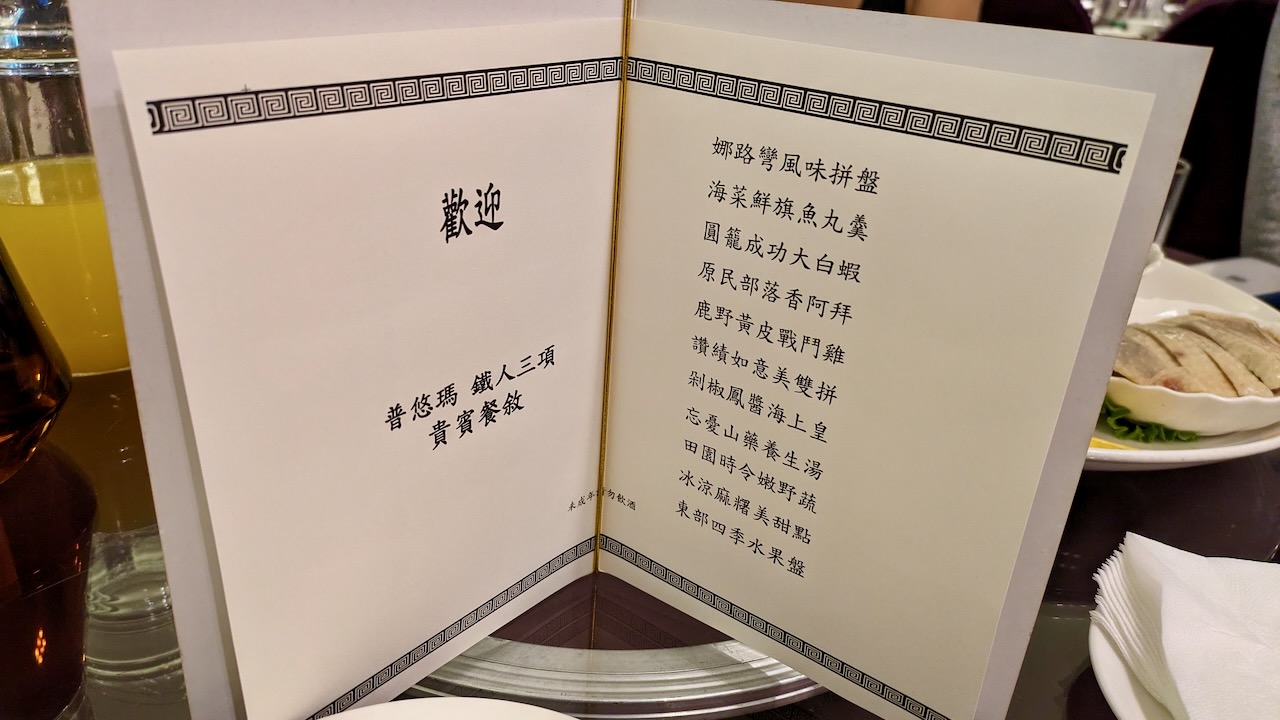 歡迎
普悠瑪 鐵人三項
貴賓餐敘
未成年請勿飲酒
娜路彎風味拼盤
海菜鮮旗魚丸羹
圓籠成功大白蝦
原民部落香阿拜
鹿野黃皮戰鬥雞
讚績如意美雙拼
剁椒鳳醬海上皇
忘憂山藥養生湯
田園時令嫩野蔬
冰涼麻糬美甜點
東部四季水果盤